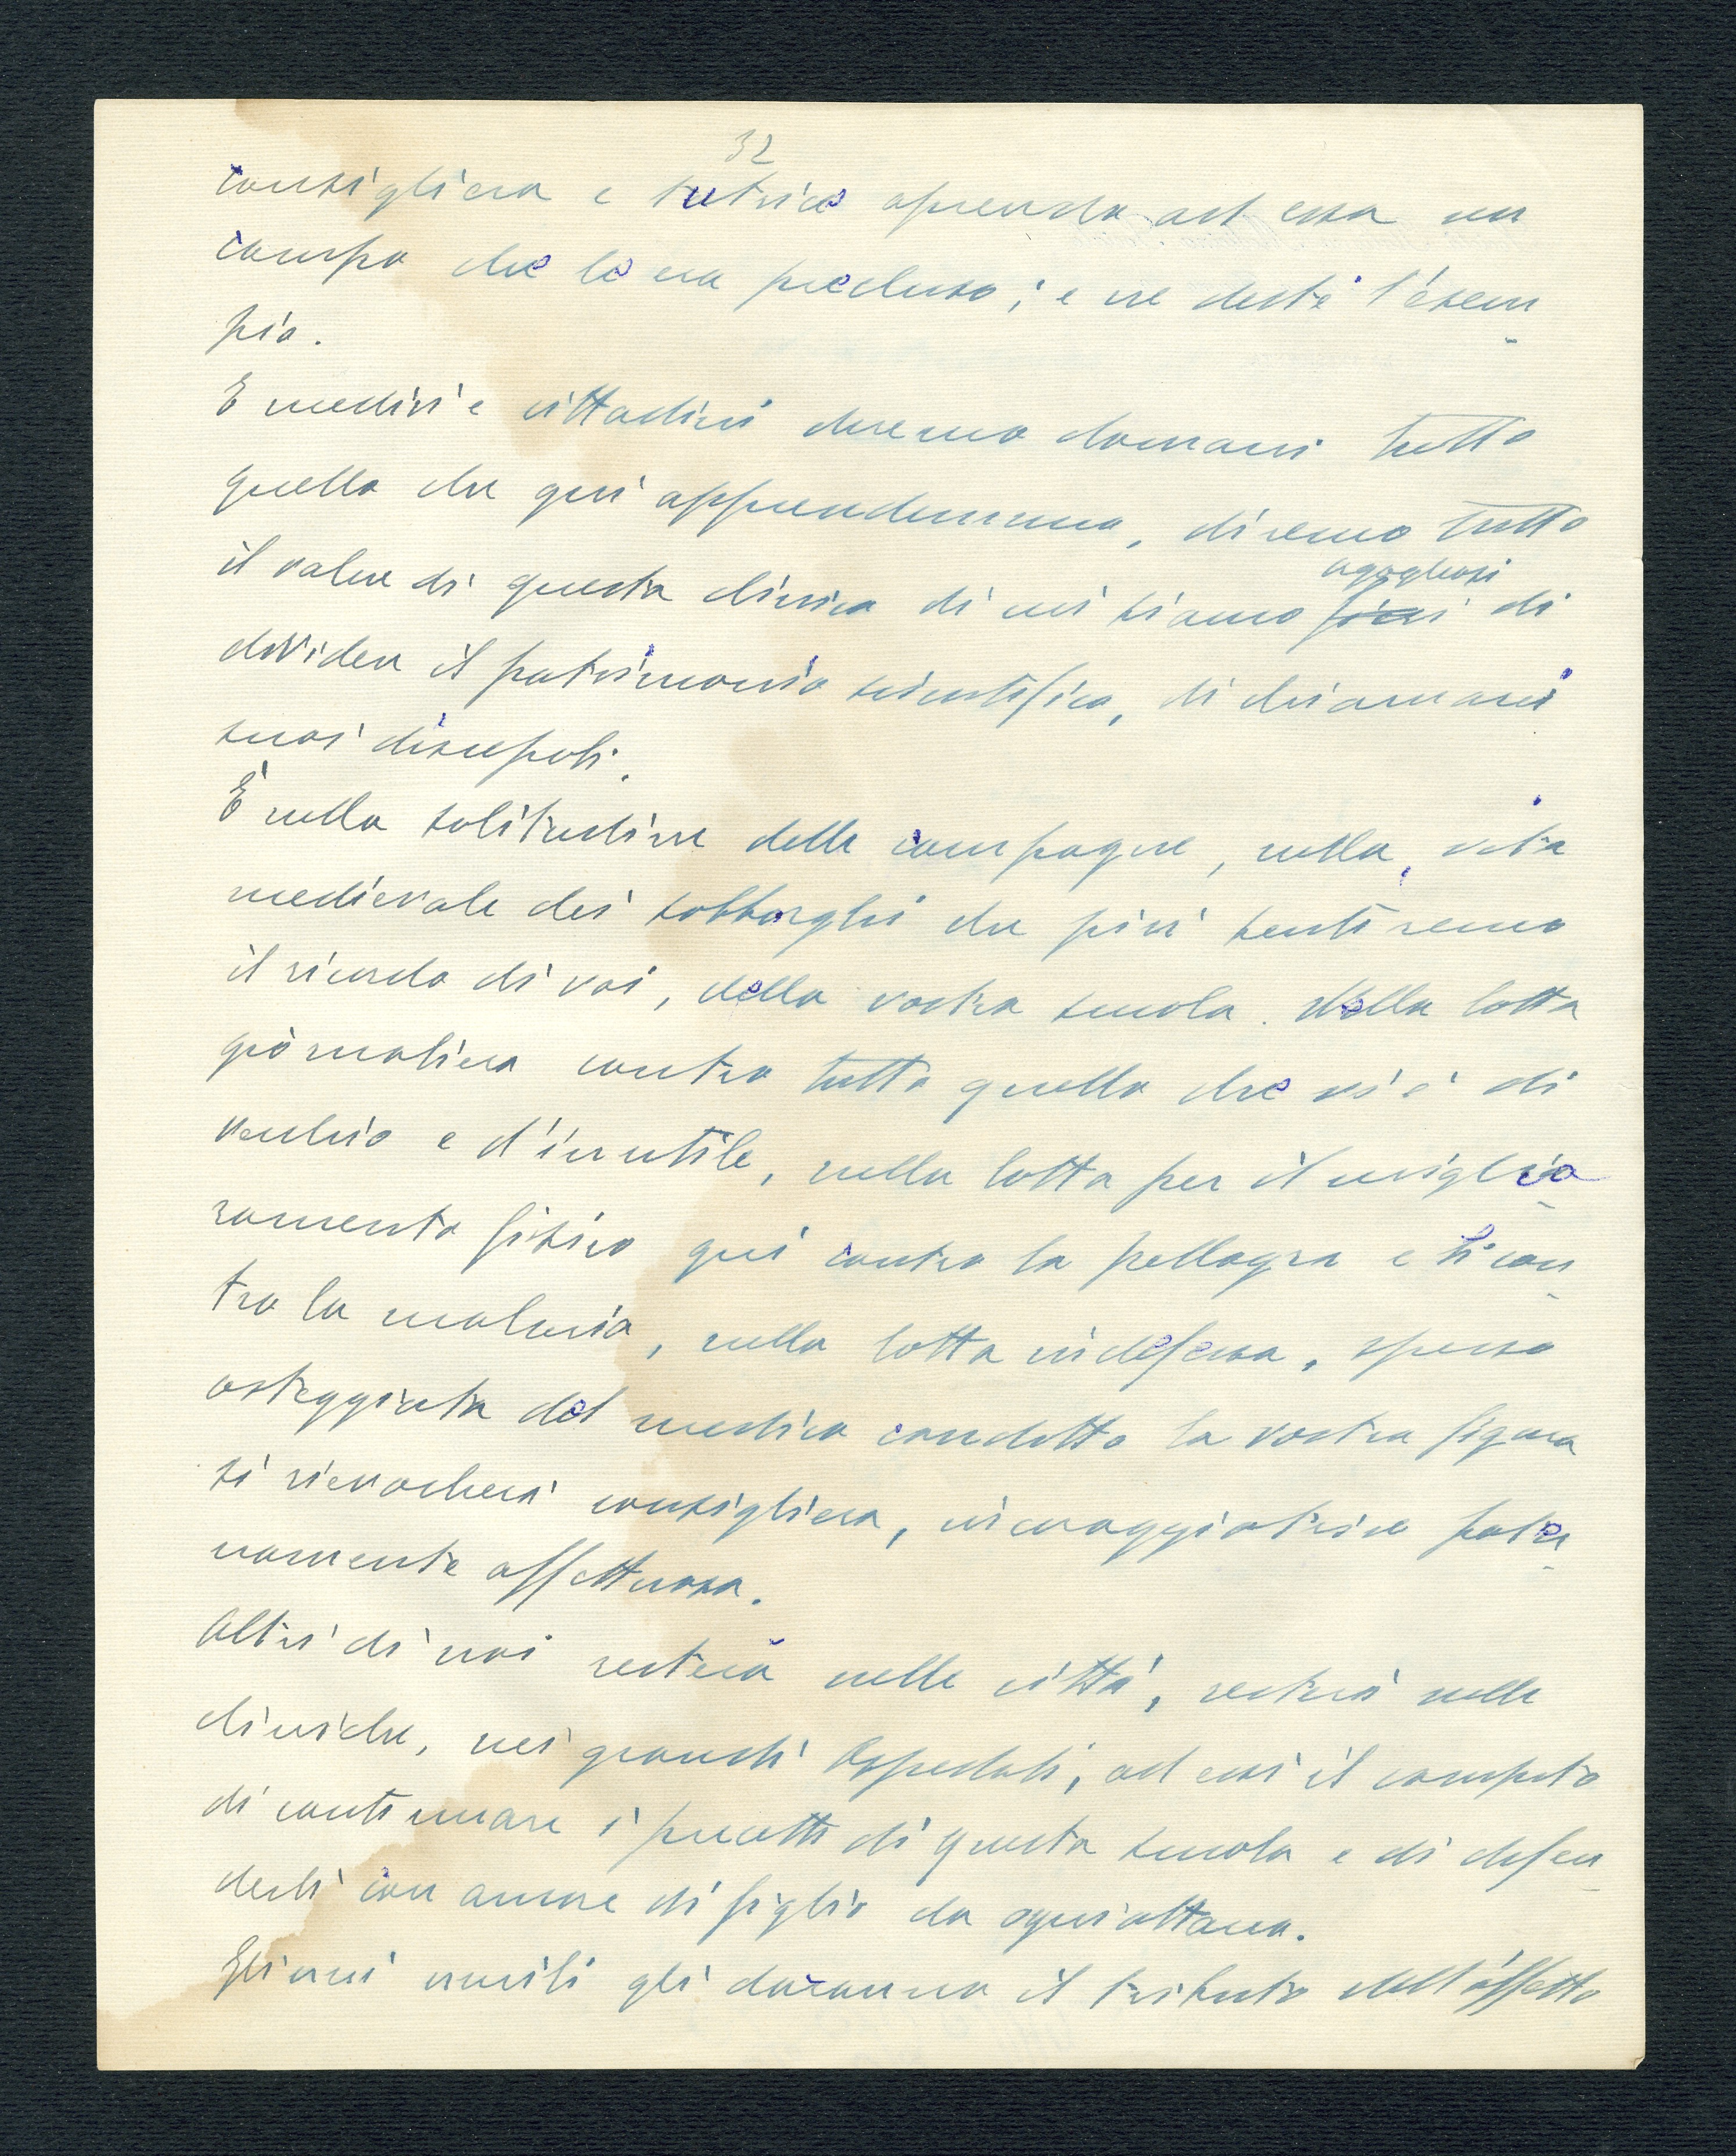 32
consigliera e tutrice aprendo ad essa un
campo che le era precluso; e ne deste l'esem
pio.
E medici e cittadini diremo domani tutto
quello che qui apprendemmo, diremo tutto
il valore di questa clinica di cui siamo fieri orgogliosi di
divider il patrimonio scientifico, di chiamarci
suoi discepoli.
È nella solitudine delle campagne, nella, vita
medievale dei sobborghi che più sentiremo
il ricordo di voi, della vostra scuola. Nella lotta
giornaliera contro tutto quello che vi è di
vecchio e d'inutile, nella lotta per il miglio
ramento fisico qui contro la pellagra e lì con
tro la malaria, nella lotta indefessa, spesso
osteggiata del medico condotto la vostra figura
si rievocherà consigliera, incoraggiatrice pater
namente affettuosa.
Altri di noi resterà nelle città, resterà nelle
cliniche, nei grandi Ospedali, ad essi il compito
di continuare i precetti di questa scuola e di difen
derli con amore di figlio da ogni attacco.
Gli uni umili gli daranno il tributo dell'affetto